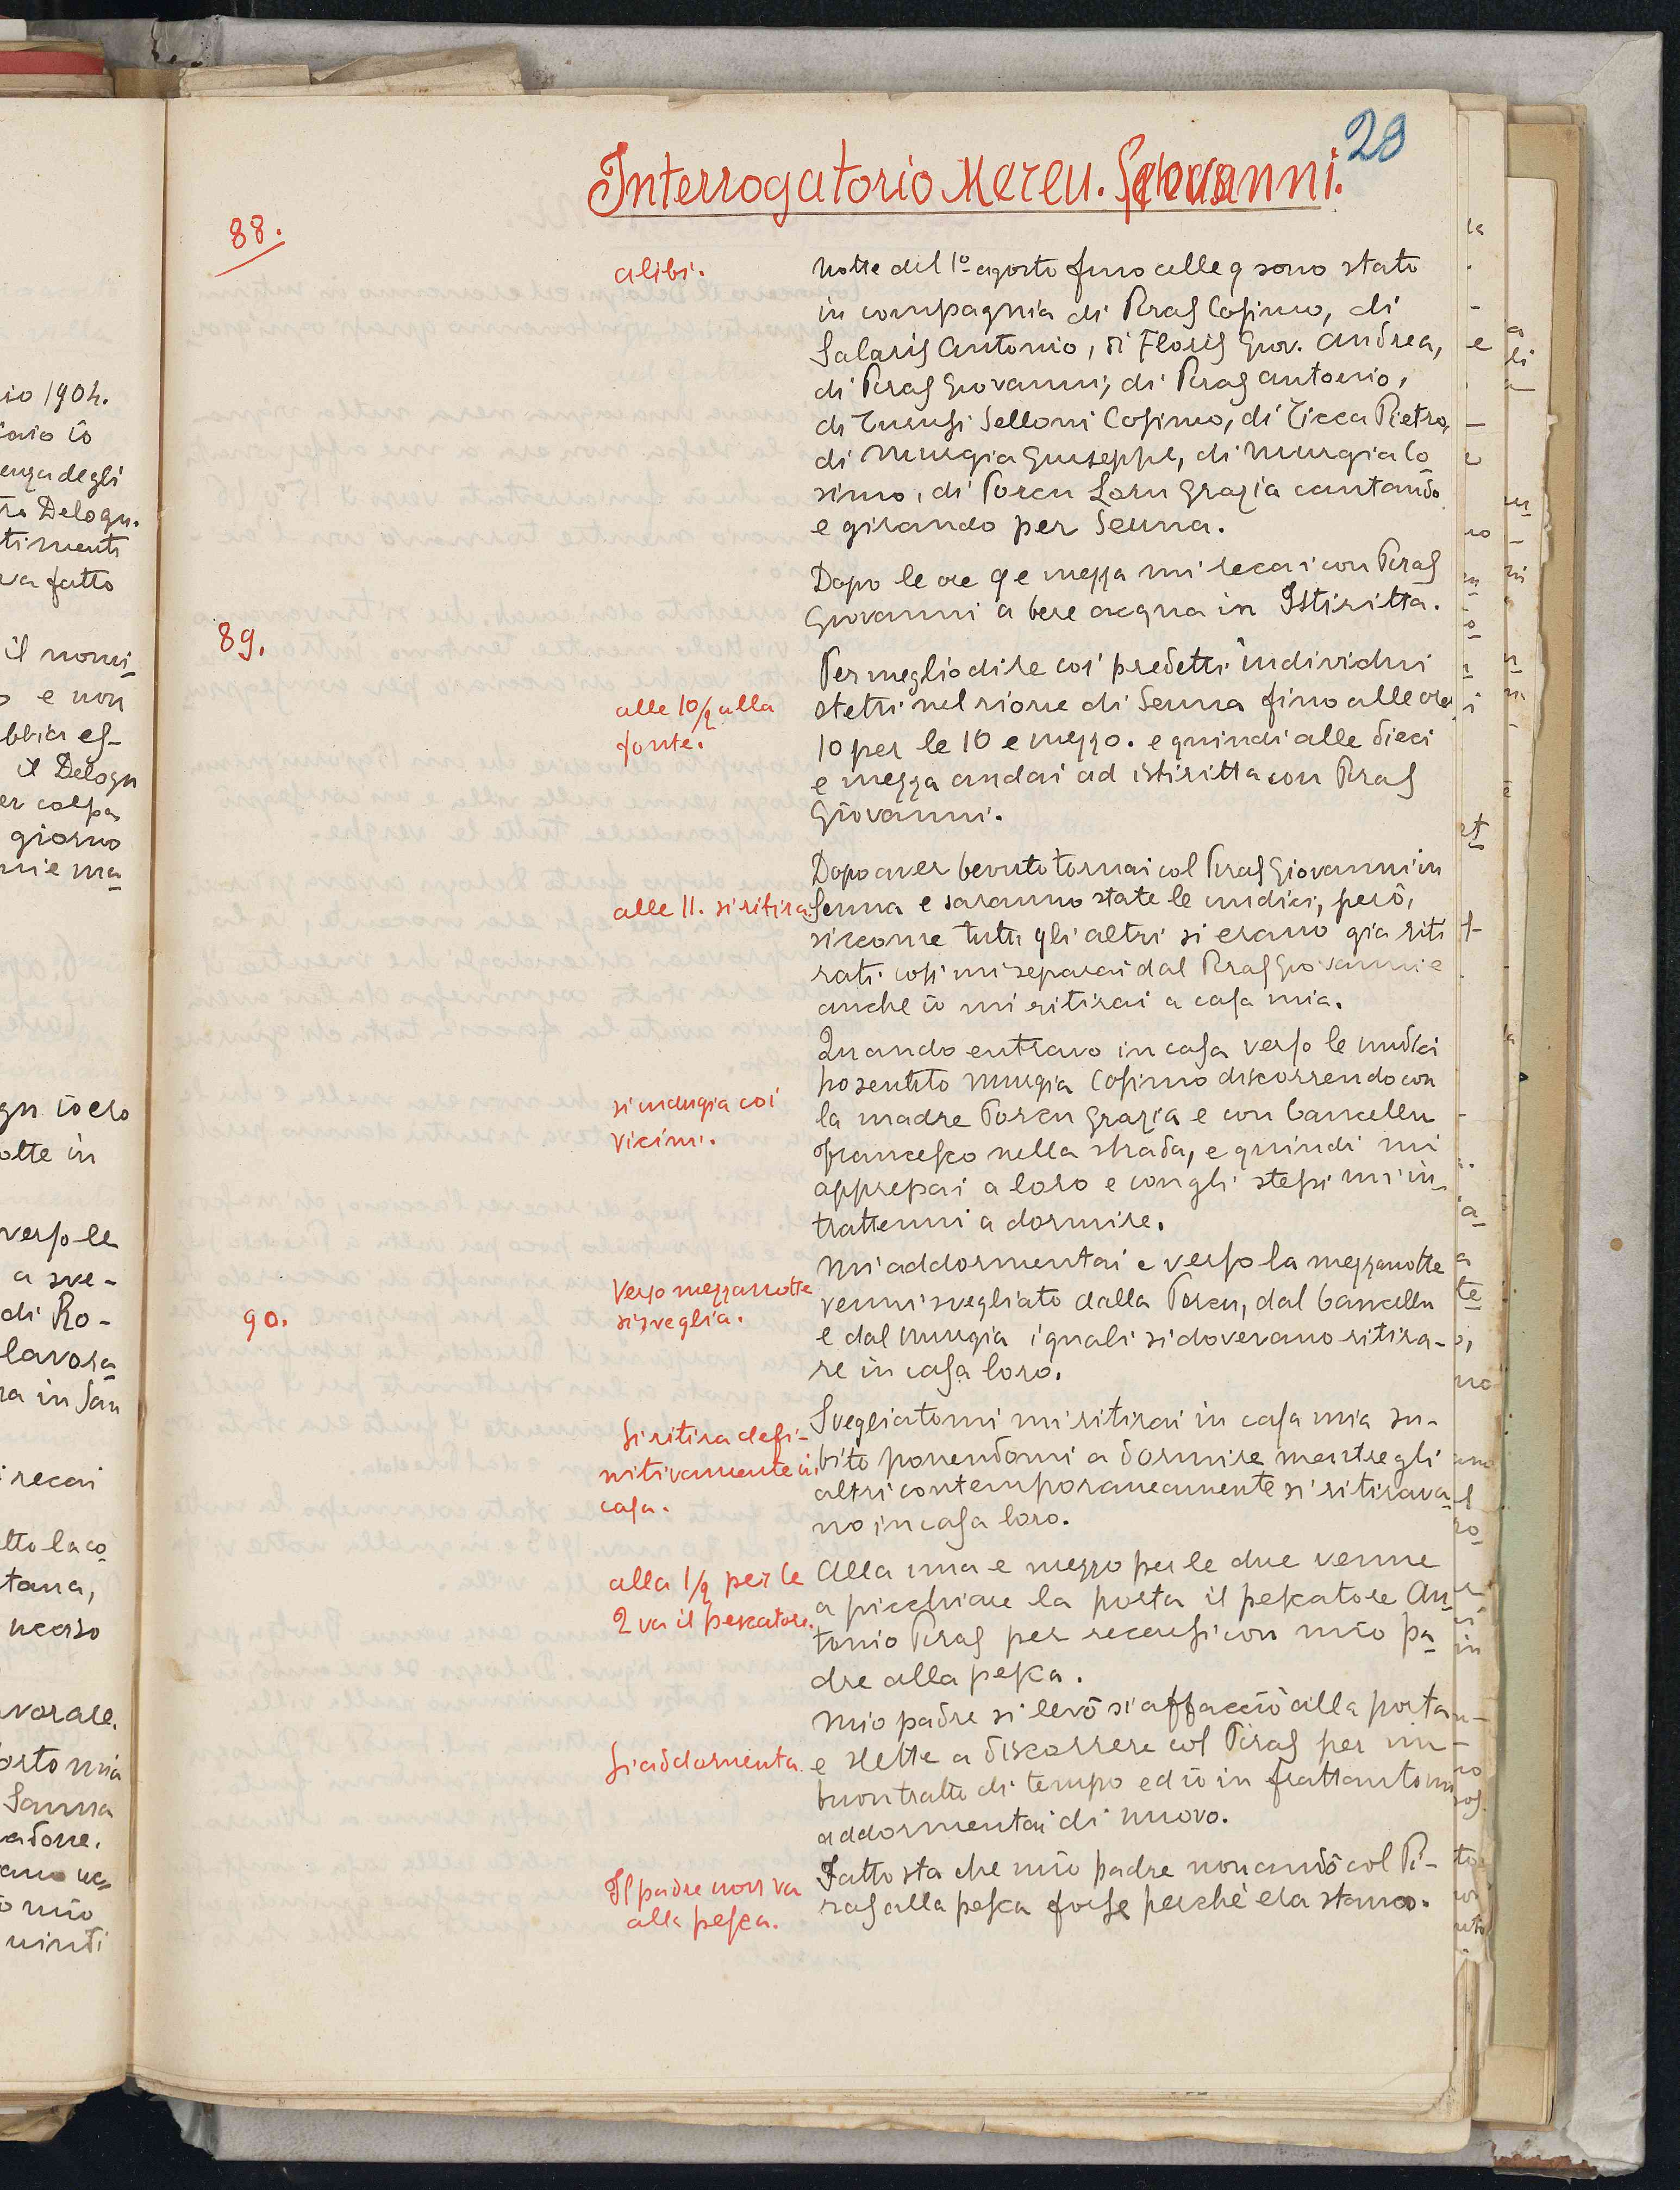 28
Interrogatorio Mereu. Giovanni.
88.
alibi.
notte del 1º agosto fino alle 9 sono stato
in compagnia di Piras Cosimo, di
Salaris Antonio, di Floris Giov. Andrea,
di Piras Giovanni, di Piras Antonio,
di Selloni Cosimo, di Ticca Pietro,
di Murgia Giuseppe, di Murgia Co
simo, di Porcu Loru Grazia cantando
e girando per Senna.
Dopo le ore 9 e mezza mi recai con Piras
Giovanni a bere acqua in Istiritta.
89.
Per meglio dire coi predetti individui
stetti nel rione di Senna fino alle ore
10 per le 10 e mezzo. e quindi alle dieci
e mezza andai ad istiritta con Piras
Giovanni.
alle 10/½ alla
fonte.
Dopo aver bevuto tornai col Piras Giovanni in
Senna e saranno state le undici, però,
siccome tutti gli altri si erano gia riti
rati cosi mi separai dal Piras Giovanni e
anche io mi ritirai a casa mia.
alle 11. si ritira.
Quando entravo in casa verso le undici
ho sentito Murgia Cosimo discorrendo con
la madre Porcu Grazia e con Cancellu
Francesco nella strada, e quindi mi
appressai a loro e con gli stessi mi in_
trattenni a dormire.
si indugia coi
vicini.
Mi addormentai e verso la mezzanotte
venni svegliato dalla Porcu, dal Cancellu
e dal Murgia i quali si dovevano ritira-
re in casa loro.
Verso mezzanotte
si sveglia.
90.
Svegliatomi mi ritirai in casa mia su-
bito ponendomi a dormire mentre gli
altri contemporaneamente si ritirava_
no in casa loro.
Si ritira defi-
nitivamente in
casa.
Alla una e mezzo per le due venne
a picchiare la porta il pescatore An_
tonio Piras per recarsi con mio pa_
dre alla pesca.
alla 1/½ per le
2 va il pescatore.
Mio padre si levò si affacciò alla porta
e stette a discorrere col Piras per un
buon tratto di tempo ed io in frattanto mi
addormentai di nuovo.
Si addormenta.
Fatto sta che mio padre non andò col Pi-
ras alla pesca forse perchè era stanco.
Il padre non va
alla pesca.